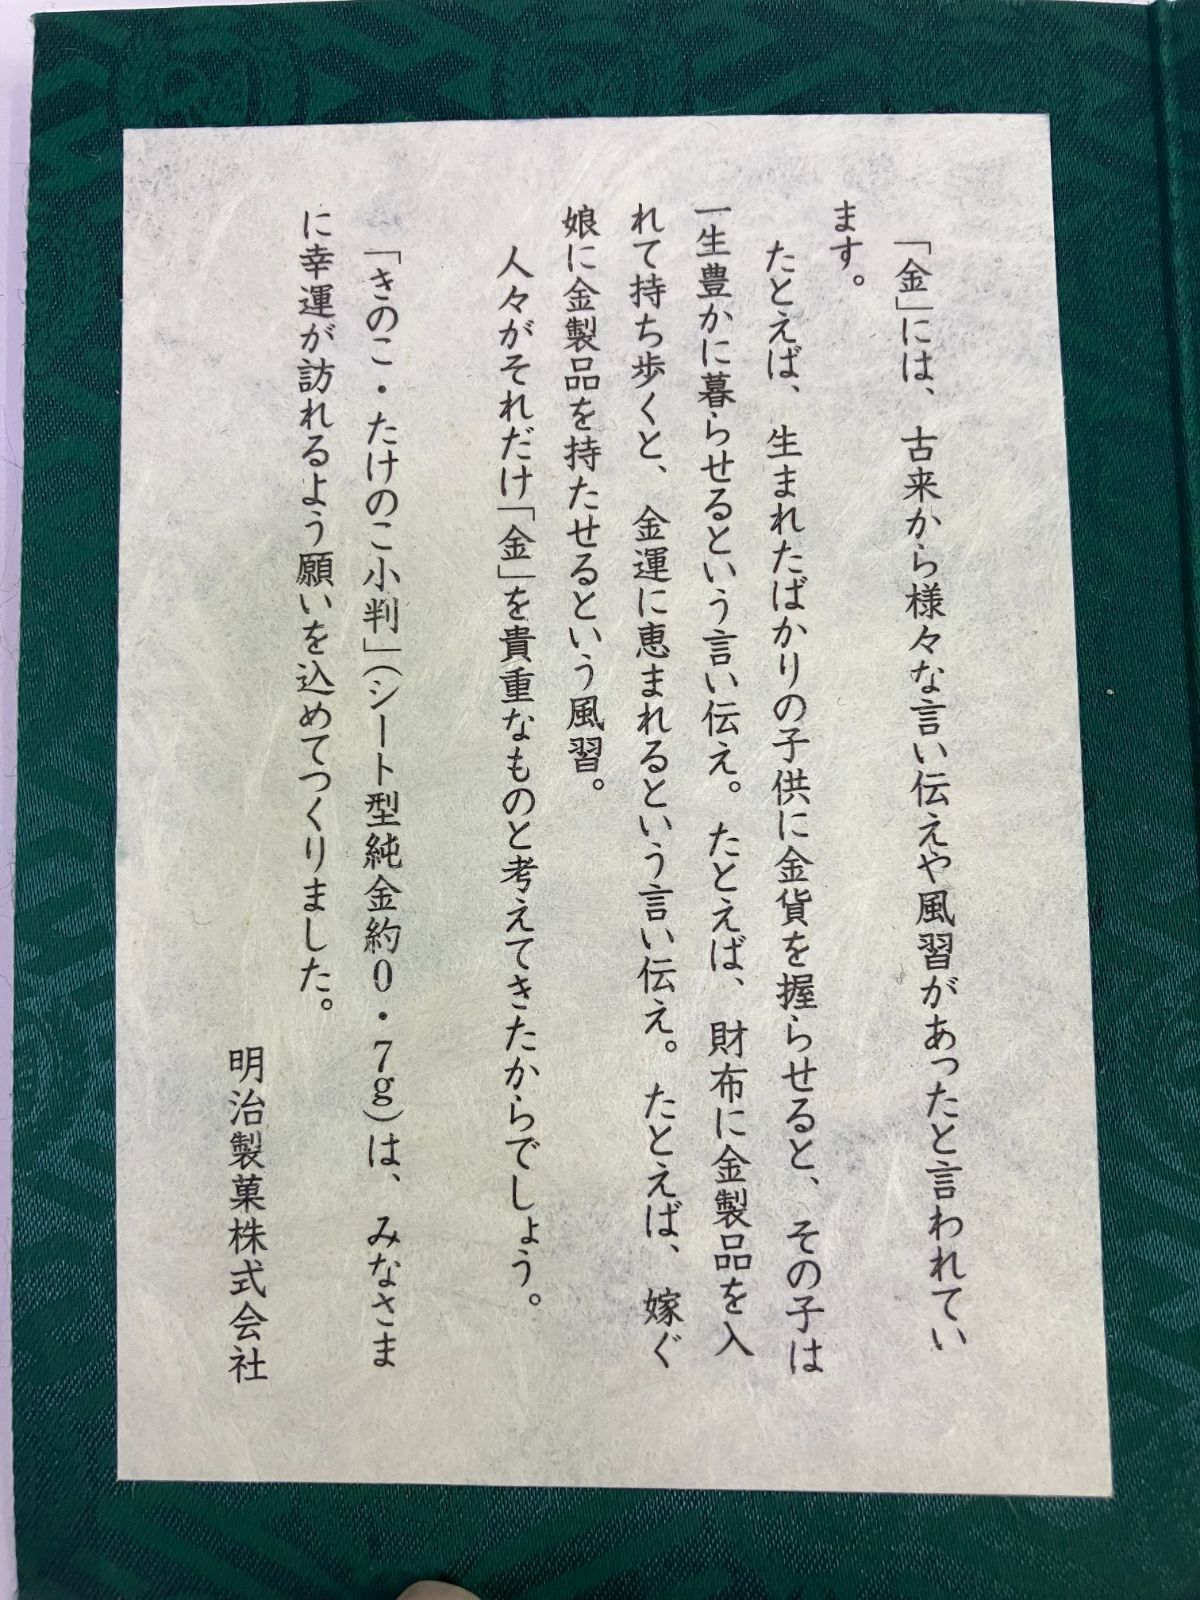 「金」には、古来から様々な言い伝えや風習があったと言われてい
ます。
たとえば、生まれたばかりの子供に金貨を握らせると、その子は
一生豊かに暮らせるという言い伝え。たとえば、財布に金製品を入
れて持ち歩くと、金運に恵まれるという言い伝え。たとえば、嫁ぐ
娘に金製品を持たせるという風習。
人々がそれだけ「金」を貴重なものと考えてきたからでしょう。
「きのこ・たけのこ小判」（シート型純金約０・７ｇ）は、みなさま
に幸運が訪れるよう願いを込めてつくりました。
明治製菓株式会社